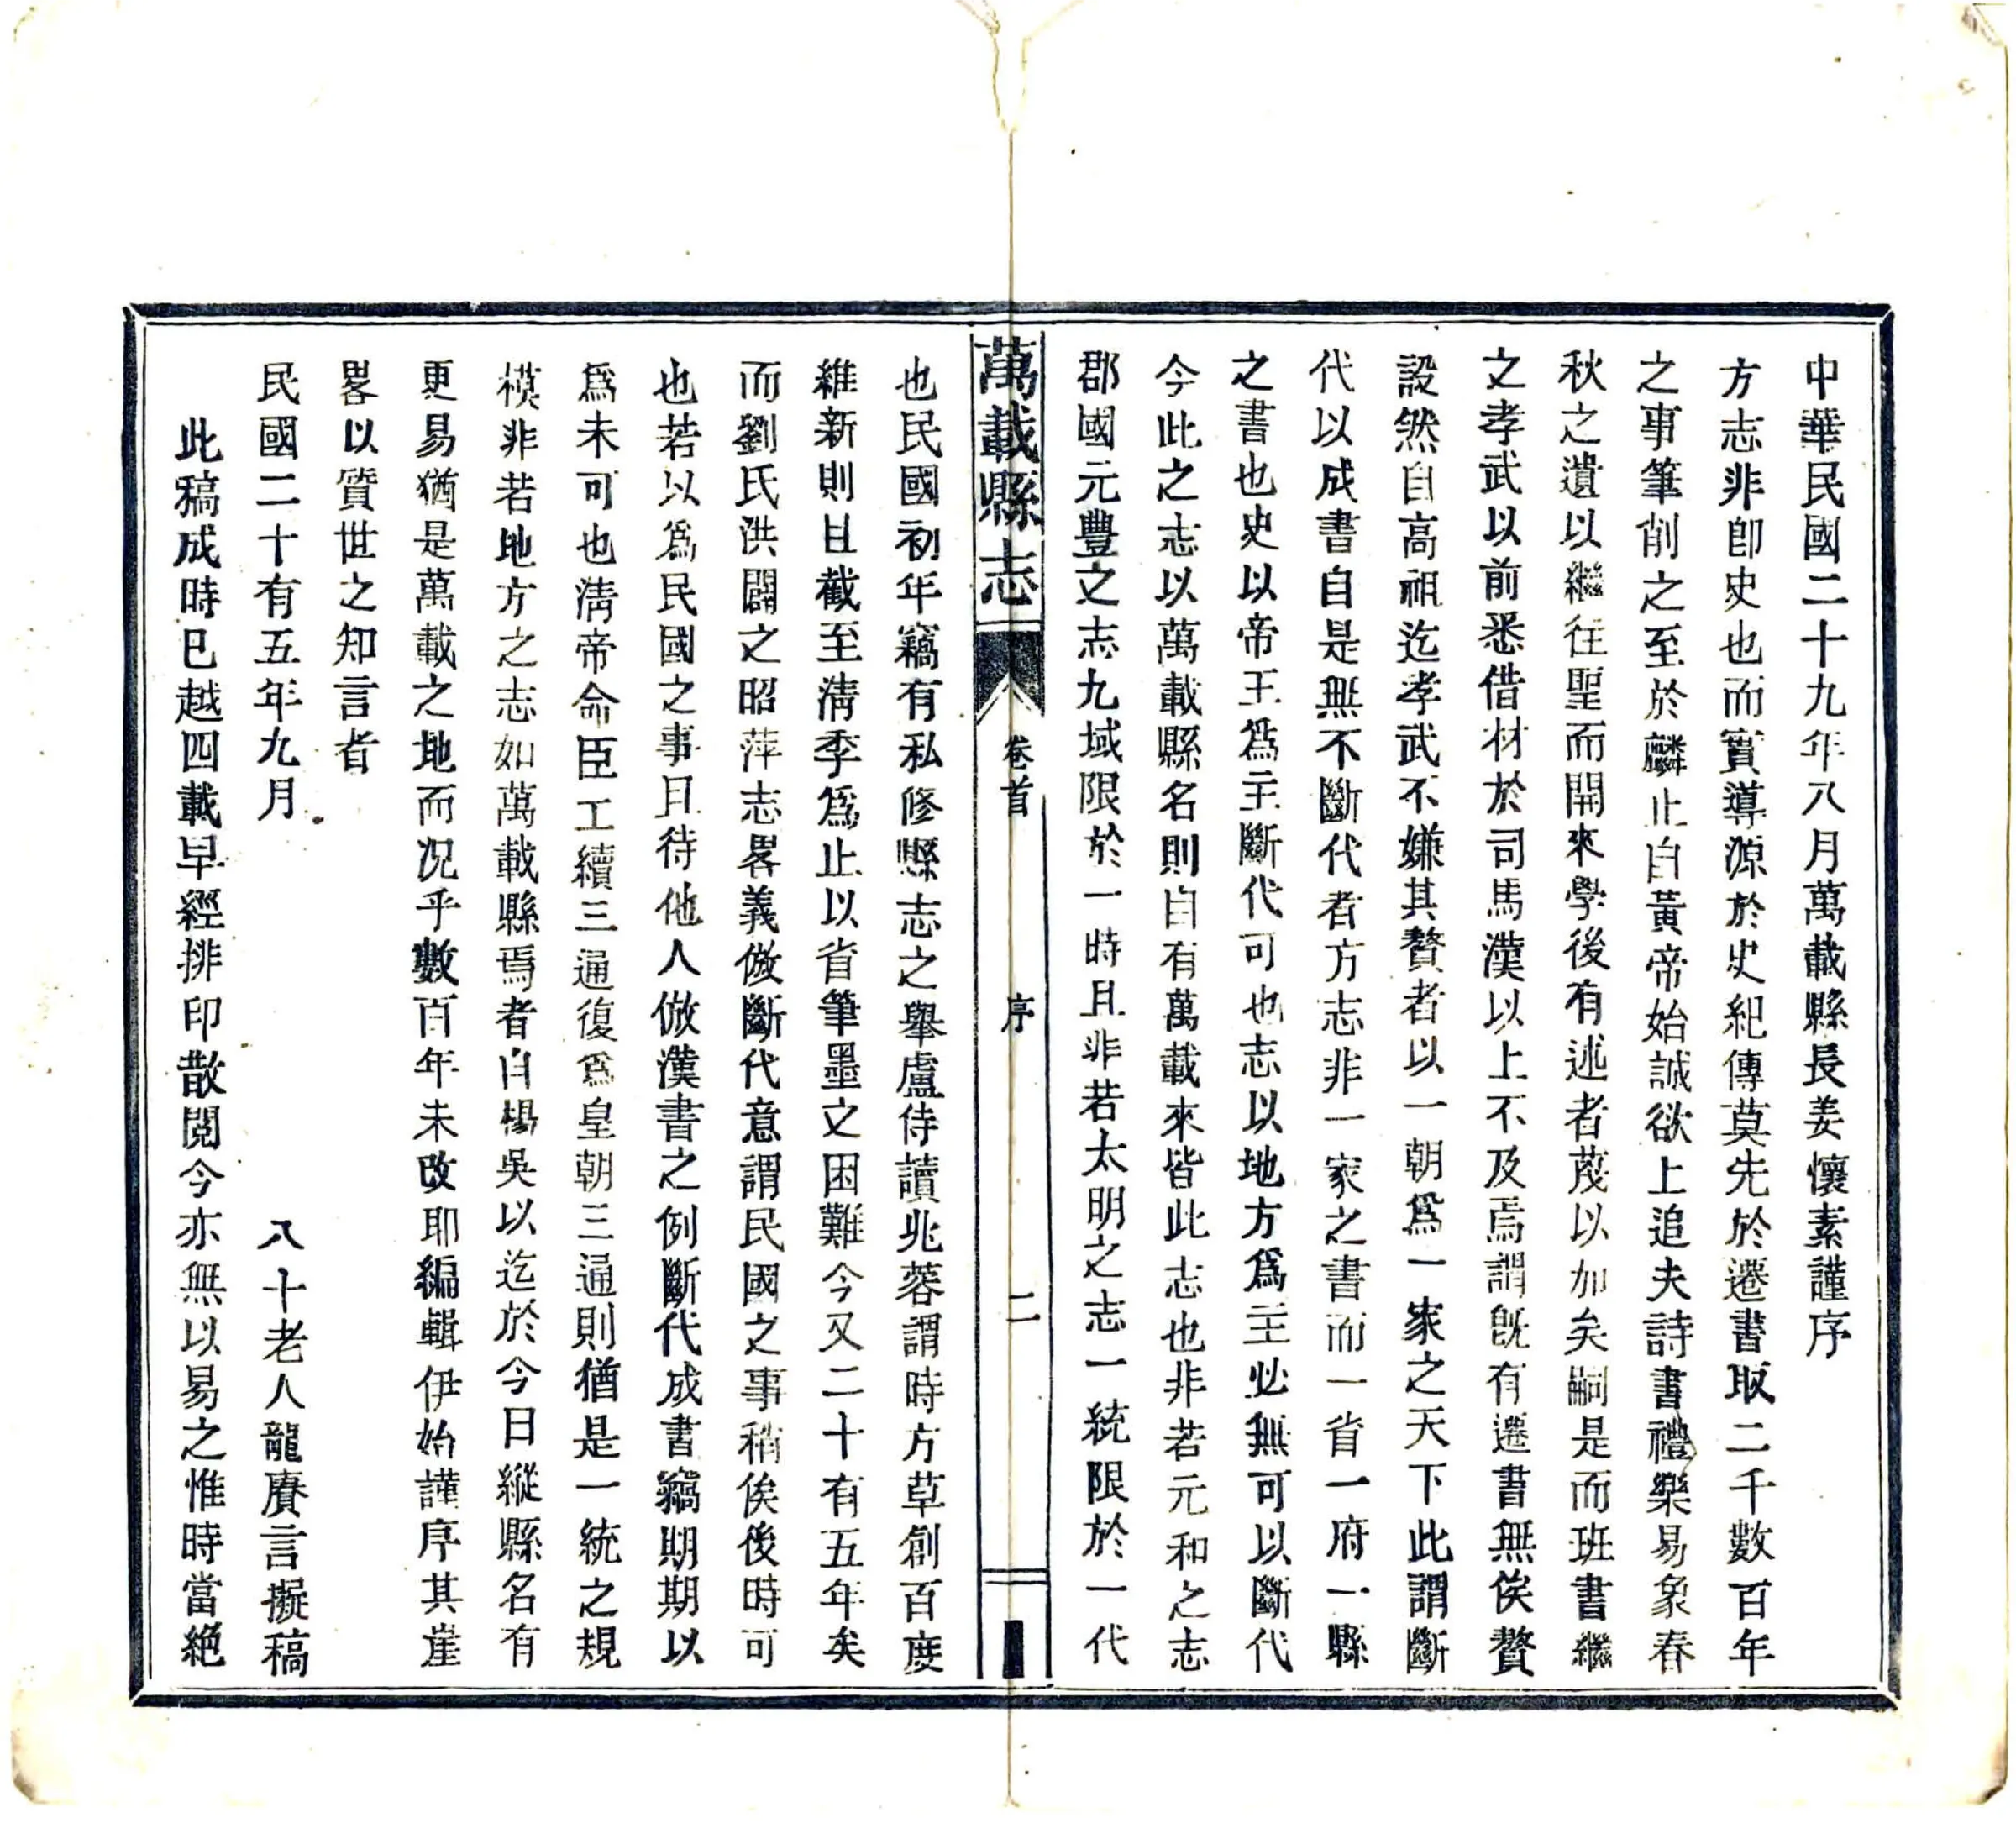 中華民國二十九年八月萬載縣長姜懷素謹序
方志非卽史也而實導源於史紀傳莫先於遷書取二千數百年
之事筆削之至於麟止自黃帝始誠欲上追夫詩書禮樂易象春
秋之遺以繼往聖而開來學後有述者蔑以加矣嗣是而班書繼
之孝武以前悉借材於司馬漢以上不及焉謂旣有遷書無俟贅
設然自高祖迄孝武不嫌其贅者以一朝爲一家之天下此謂斷
代以成書自是無不斷代者方志非一家之書而一省一府一縣
之書也史以帝王爲主斷代可也志以地方爲主必無可以斷代
今此之志以萬載縣名則自有萬載來皆此志也非若元和之志
郡國元豐之志九域限於一時且非若太明之志一統限於一代
萬載縣志
卷首
序
二
也民國初年竊有私修縣志之舉盧侍讀兆蓉謂時方草創百度
維新則且截至淸季爲止以省筆墨之困難今又二十有五年矣
而劉氏洪闢之昭萍志畧義倣斷代意謂民國之事稍俟後時可
也若以爲民國之事且待他人倣漢書之例斷代成書竊期期以
爲未可也淸帝命臣工續三通復爲皇朝三通則猶是一統之規
模非若地方之志如萬載縣焉者自楊吳以迄於今日縱縣名有
更易猶是萬載之地而況乎數百年未改耶編輯伊始謹序其崖
畧以質世之知言者
民國二十有五年九月 八十老人龍賡言擬稿
此稿成時已越四載早經排印散閱今亦無以易之惟時當絕